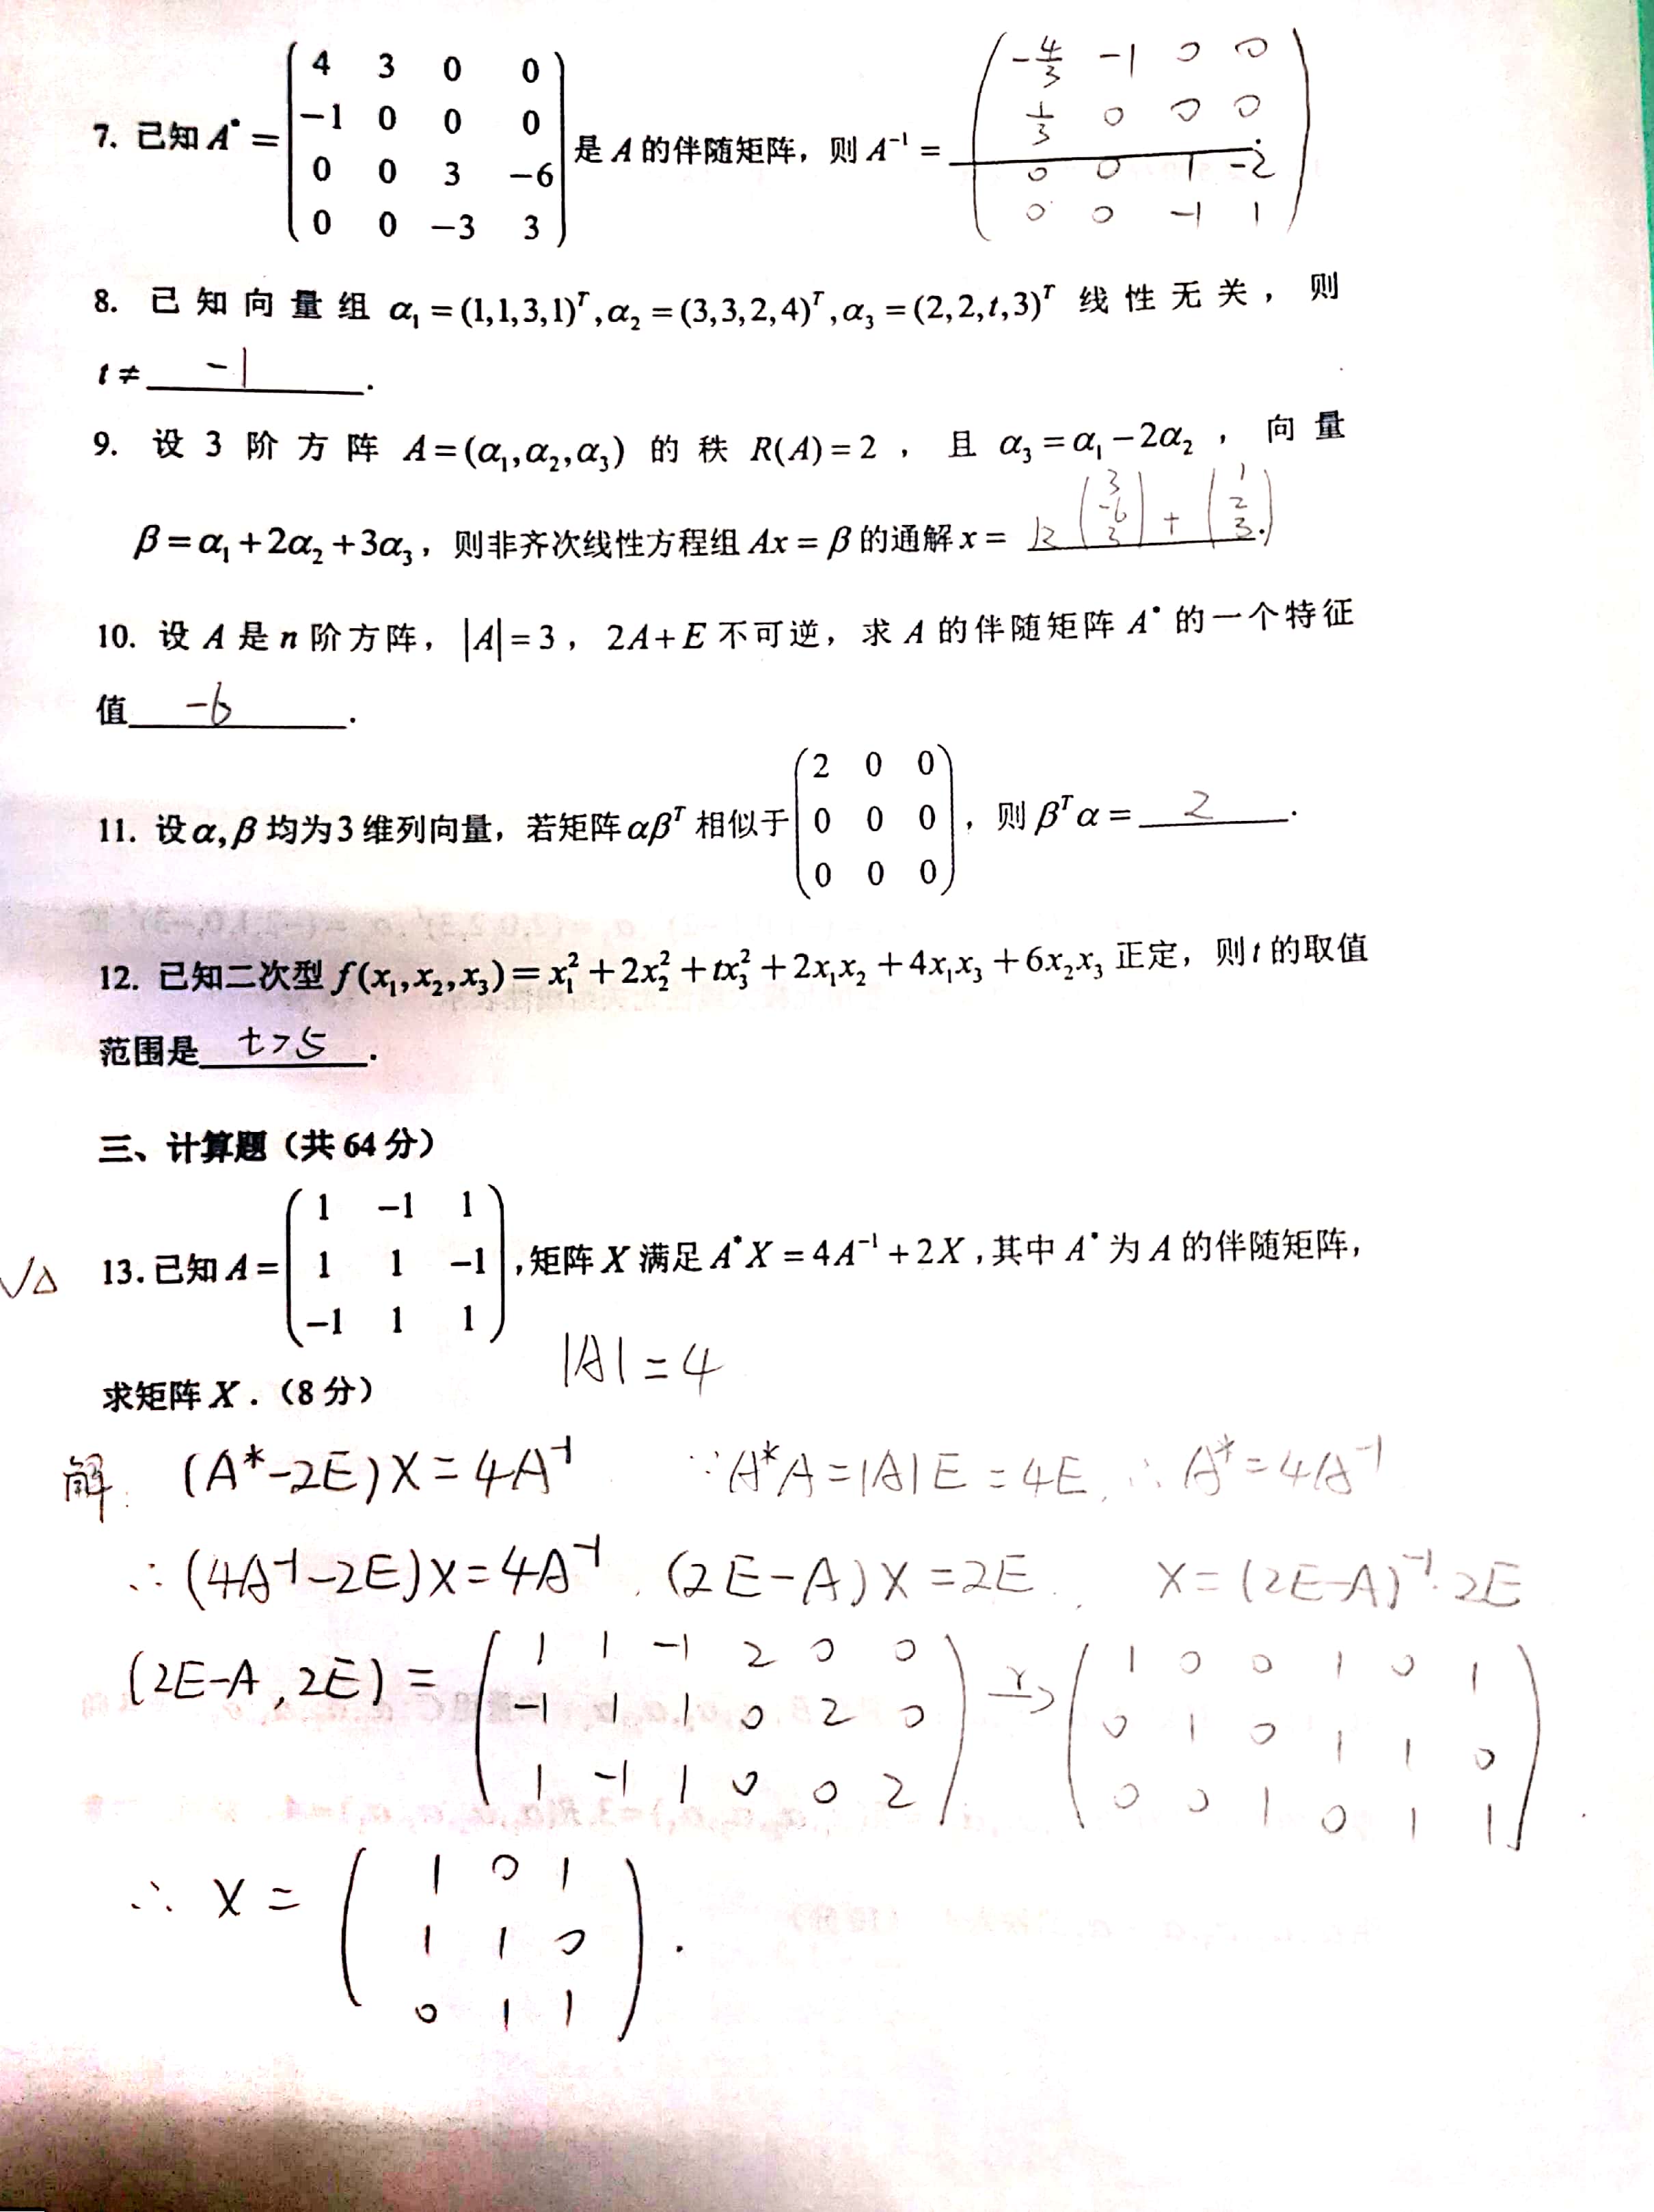 7. 已知 A* = (4 3 0 0; −1 0 0 0; 0 0 3 −6; 0 0 −3 3) 是 A 的伴随矩阵，则 A⁻¹ = (-4/3 -1 0 0; 1/3 0 0 0; 0 0 1 -2; 0 0 -1 1)
8. 已知向量组 α₁ = (1,1,3,1)ᵀ, α₂ = (3,3,2,4)ᵀ, α₃ = (2,2,t,3)ᵀ 线性无关，则
t ≠ -1 .
9. 设 3 阶方阵 A = (α₁,α₂,α₃) 的秩 R(A) = 2 ，且 α₃ = α₁ − 2α₂ ，向量
β = α₁ + 2α₂ + 3α₃，则非齐次线性方程组 Ax = β 的通解 x = k(3; -6; 3) + (1; 2; 3).
10. 设 A 是 n 阶方阵，|A| = 3，2A + E 不可逆，求 A 的伴随矩阵 A* 的一个特征
值 -6 .
11. 设 α, β 均为 3 维列向量，若矩阵 αβᵀ 相似于 (2 0 0; 0 0 0; 0 0 0)，则 βᵀα = 2 .
12. 已知二次型 f(x₁,x₂,x₃) = x₁² + 2x₂² + tx₃² + 2x₁x₂ + 4x₁x₃ + 6x₂x₃ 正定，则 t 的取值
范围是 t>5 .
三、计算题（共 64 分）
√△ 13. 已知 A = (1 −1 1; 1 1 −1; −1 1 1), 矩阵 X 满足 A*X = 4A⁻¹ + 2X , 其中 A* 为 A 的伴随矩阵，
求矩阵 X .（8 分） |A| = 4
解: (A*-2E)X = 4A⁻¹ ∵A*A = |A|E = 4E, ∴ A* = 4A⁻¹
∴ (4A⁻¹-2E)X = 4A⁻¹. (2E-A)X = 2E. X = (2E-A)⁻¹·2E
(2E-A, 2E) = (1 1 -1 2 0 0; -1 1 1 0 2 0; 1 -1 1 0 0 2) r→ (1 0 0 1 0 1; 0 1 0 1 1 0; 0 0 1 0 1 1)
∴ X = (1 0 1; 1 1 0; 0 1 1).